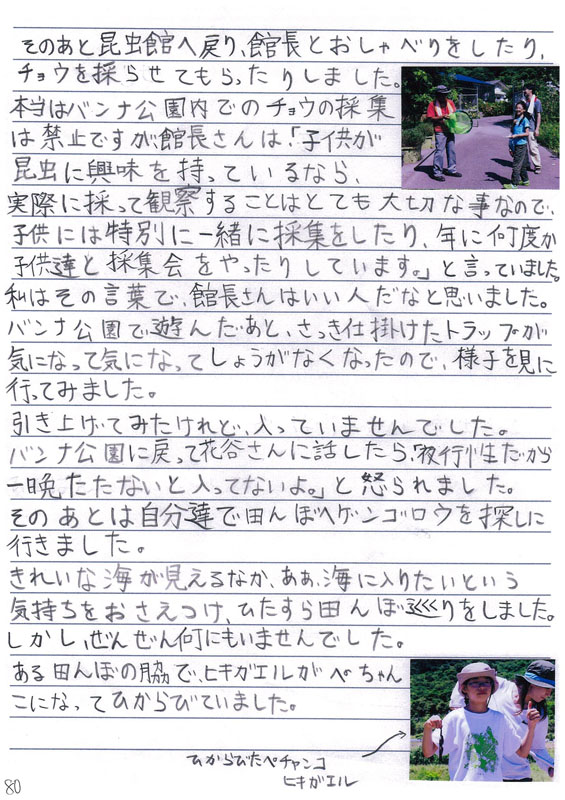 そのあと昆虫館へ戻り、館長とおしゃべりをしたり、
チョウを採らせてもらったりしました。
本当はバンナ公園内でのチョウの採集
は禁止ですが館長さんは、「子供が
昆虫に興味を持っているなら、
実際に採って観察することはとても大切な事なので、
子供には特別に一緒に採集をしたり、年に何度か
子供達と採集会をやったりしています。」と言っていました。
私はその言葉で、館長さんはいい人だなと思いました。
バンナ公園で遊んだあと、さっき仕掛けたトラップが
気になって気になってしょうがなくなったので、様子を見に
行ってみました。
引き上げてみたけれど、入っていませんでした。
バンナ公園に戻って花谷さんに話したら、夜行性だから
一晩たたないと入ってないよ。」と怒られました。
そのあとは自分達で田んぼへゲンゴロウを探しに
行きました。
きれいな海が見えるなか、ああ、海に入りたいという
気持ちをおさえつけ、ひたすら田んぼ巡りをしました。
しかし、ぜんぜん何にもいませんでした。
ある田んぼの脇で、ヒキガエルがぺちゃん
こになってひからびていました。
ひからびたペチャンコ
ヒキガエル
80